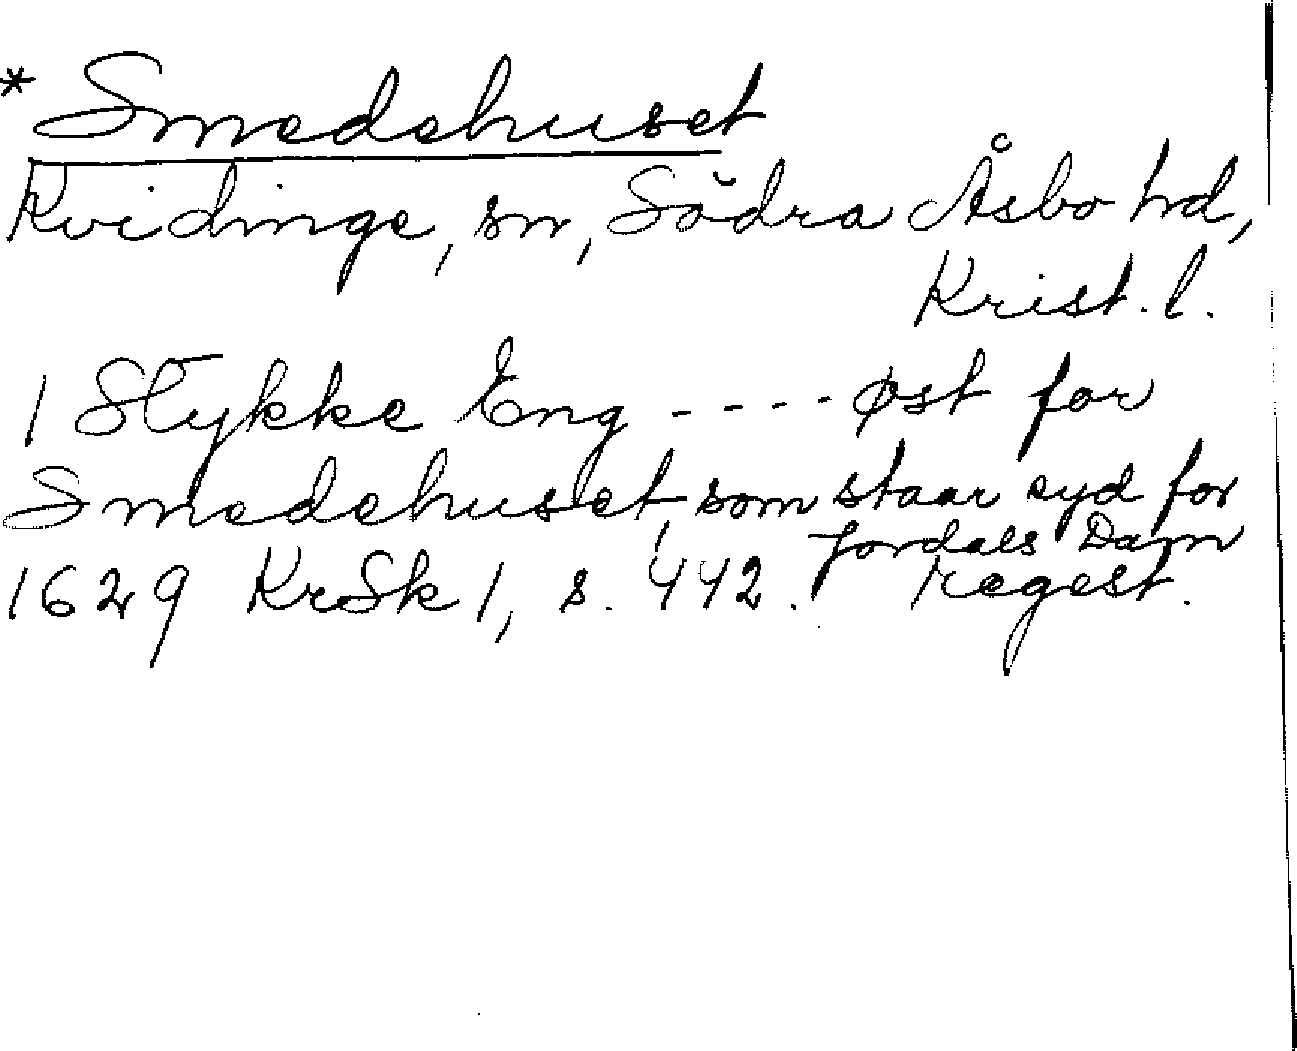 * Smedehuset
Kvidinge, sn, Södra Åsbo hd,
Krist. l.
1 Stykke Eng - - - - øst for
Smedehuset, som staar syd for
Jordals Dam
1629 KrSk 1, s. 442. regest.